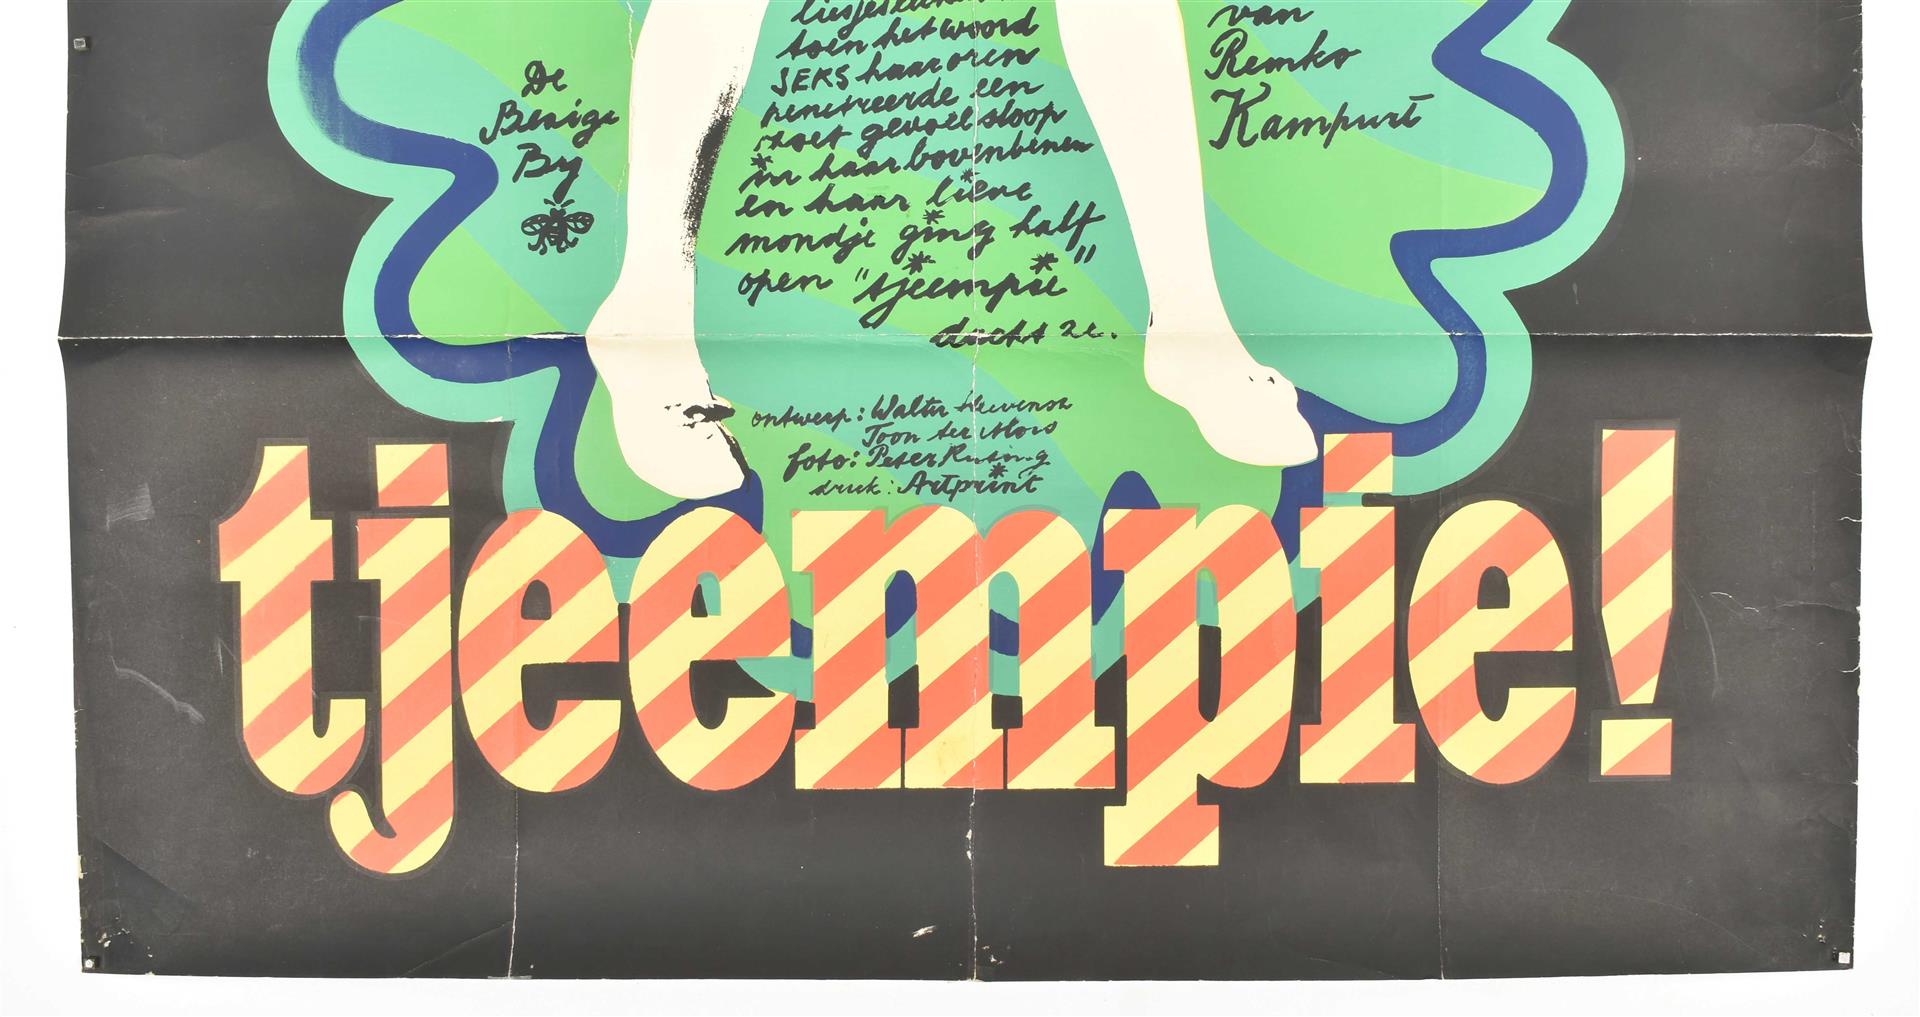 toen het woord
SEKS haar oren
penetreerde een
zoet gevoel sloop
in haar bovenbenen
en haar lieve
mondje ging half
open "tjeempie"
dacht ze.
De
Bezige
By
van
Remko
Kampurt
ontwerp: Walter
Toon ter
foto: Peter
druk: Artprint
tjeempie!